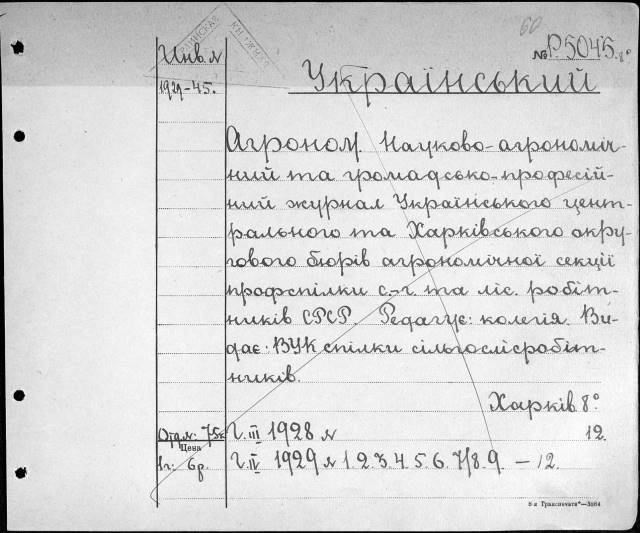 60
Инв. №
№ Р.5045. 8°
1929-45.
Український
Агроном. Науково-агрономіч-
ний та громадсько-професій-
ний журнал Українського цент-
рального та Харківського окру-
гового бюрів агрономічної секції
профспілки с.-г. та ліс. робіт-
ників СРСР. Редагує: колегія. Ви-
дає: ВУК спілки сільгослісробіт-
ників.
Харків 8°
Отд. №: 75к Г. III 1928 № 12.
Цена
1 г: 6р. Г. IV 1929 № 1. 2. 3. 4. 5. 6. 7/8. 9. – 12.